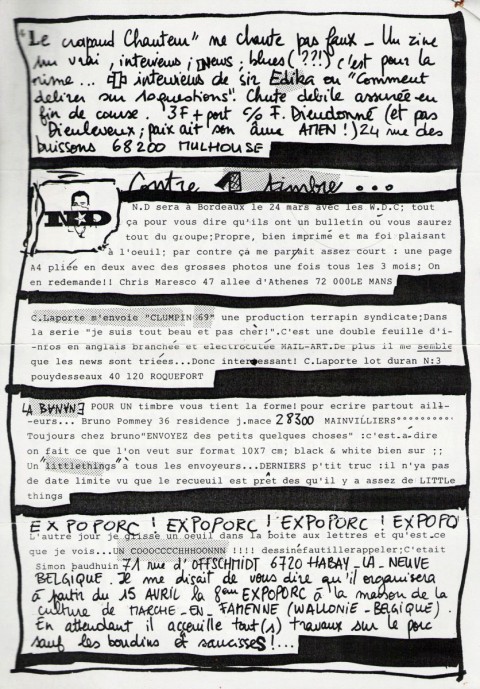 "Le crapaud Chanteur" ne chante pas faux _ Un zine
un vrai, interviews; news; blues (??!) c'est pour la
rime... interviews de sir Edika ou "Comment
delirer sur 10 questions". Chute debile assurée en
fin de course. 3F + port c/o F. Dieudonné (et pas
Dieuleveux; paix ait son âme AMEN!) 24 rue des
buissons 68200 MULHOUSE
Contre 1 timbre...
N.D
N.D sera à Bordeaux le 24 mars avec les W.D.C; tout
ça pour vous dire qu'ils ont un bulletin où vous saurez
tout du groupe;Propre, bien imprimé et ma foi plaisant
à l'oeuil; par contre ça me parait assez court : une page
A4 pliée en deux avec des grosses photos une fois tous les 3 mois; On
en redemande!! Chris Maresco 47 allee d'Athenes 72 000LE MANS
C.Laporte m'envoie "CLUMPIN 69" une production terrapin syndicate;Dans
la serie "je suis tout beau et pas chèr!".C'est une double feuille d'i-
-nfos en anglais branchée et electrocutée MAIL-ART.De plus il me semble
que les news sont triées...Donc interessant! C.Laporte lot duran N:3
pouydesseaux 40 120 ROQUEFORT
LA BANANE POUR UN timbre vous tient la forme! pour ecrire partout aill-
-eurs... Bruno Pommey 36 residence j.mace 28300 MAINVILLIERS°°°°°°°°°°
Toujours chez bruno"ENVOYEZ des petits quelques choses" :c'est.a-dire
on fait ce que l'on veut sur format 10X7 cm; black & white bien sur ;;
Un "littlethings" à tous les envoyeurs...DERNIERS p'tit truc :il n'ya pas
de date limite vu que le recueuil est prêt des qu'il y a assez de LITTLe
things
EXPOPORC ! EXPOPORC ! EXPOPORC ! EXPOPO
L'autre jour je glisse un oeuil dans la boite aux lettres et qu'est.ce
que je vois...UN COOOCCCCHHHOONNN !!!! dessinéfautillerappeler;C'etait
Simon baudhuin 71 rue d'OFFSCHMIDT 6720 HABAY_LA_NEUVE
BELGIQUE. Il me disait de vous dire qu'il organisera
à partir du 15 AVRIL la 8ème EXPOPORC à la maison de la
culture de MARCHE_EN_FAMENNE (WALLONIE_BELGIQUE).
En attendant il acceuille tout(s) travaux sur le porc
sauf les boudins et saucisses!...